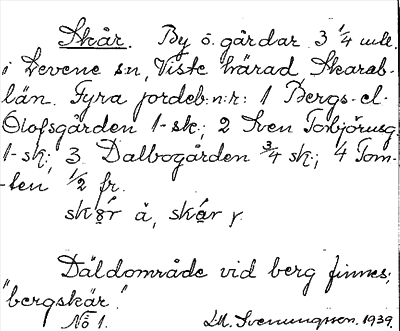 Skår. By o. gårdar 3 1/4 mtl.
i Levene sn, Viste härad, Skarab-
län. Fyra jordeb:n:r: 1 Bergs- el.
Olofsgården 1-sk.; 2 Sven Torbjörnsg.
1-sk; 3 Dalbogården 3/4 sk.; 4 Tom-
-ten 1/2 fr.
skǫ́r å, skár y.
Däldområde vid berg finnes;
"bergskär".
No 1. LM. Svenungsson. 1939.